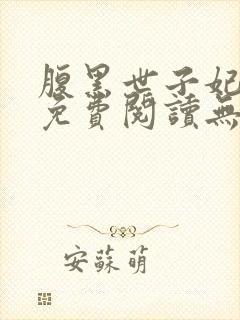 腹黑世子妃
免費閱讀無
安蘇萌